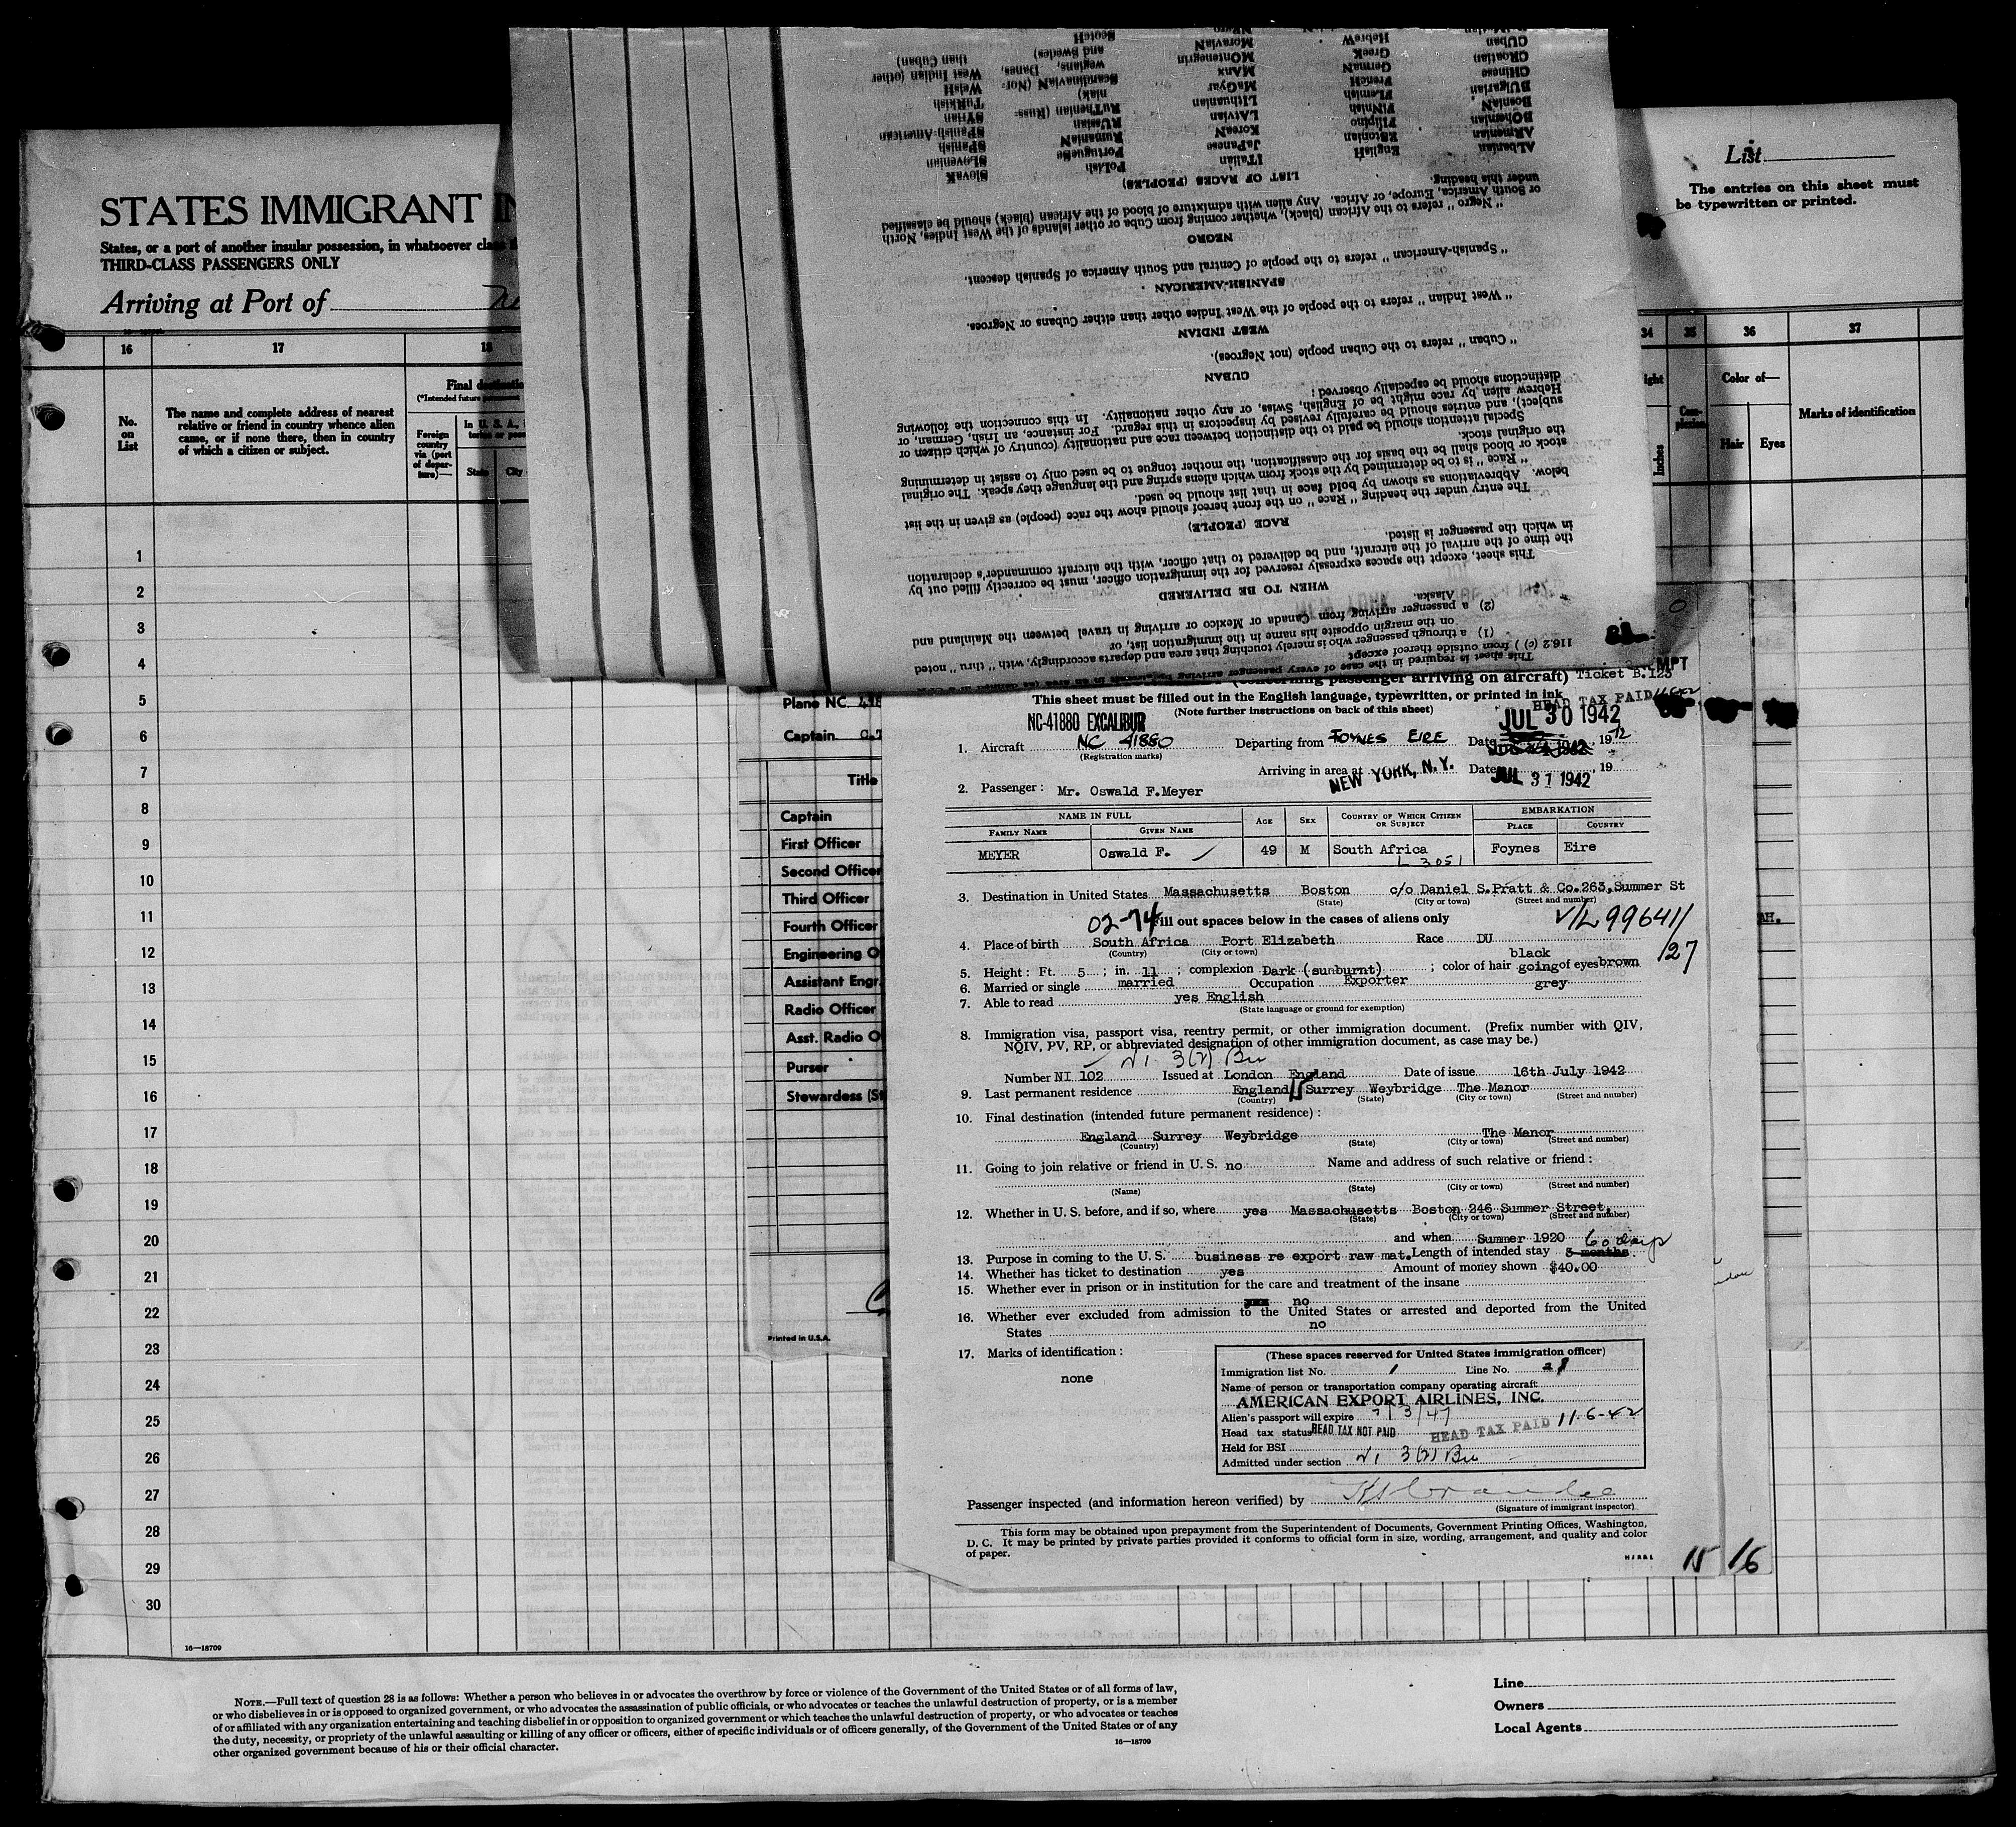 STATES IMMIGRANT IN
States, or a part of another insular possession, in whatsoever class
THIRD-CLASS PASSENGERS ONLY
Arriving at Port of
List
The entries on this sheet must
be typewritten or printed.
16 17 18 34 35 36 37
No. on List
The name and complete address of nearest
relative or friend in country whence alien
came, or if none there, then in country
of which a citizen or subject.
Final
(*Intended future permanent
Foreign country via (port of departure)—
In U. S. A.,
State City
Inches
Complexion
Color of—
Hair Eyes
Marks of identification
1
2
3
4
5
6
7
8
9
10
11
12
13
14
15
16
17
18
19
20
21
22
23
24
25
26
27
28
29
30
16—18709
Scotch
and Swedes)
wegians, Danes,
Scandinavian (Nor-
niak)
RuThenian (Russ-
RUssian
RumaniaN
Portuguese
Polish
SlovaK
than Cuban)
West Indian (other
WelsH
TuRkish
SYrian
SPanish-American
SPanish
SLovenian
MoraviaN
MOntenegrin
MAnx
MaGyar
LIthuanian
LAtvian
KoreaN
JaPanese
ITalian
HebreW
GreeK
GermaN
FrencH
FLemish
FINnish
FIlipino
EStonian
EnglisH
CUban
CRoatian
CHinese
BUlgarian
BosniaN
BOhemian
ARmenian
ALbanian
LIST OF RACES (PEOPLES)
under this heading.
or South America, Europe, or Africa. Any alien with admixture of blood of the African (black) should be classified
" Negro " refers to the African (black), whether coming from Cuba or other islands of the West Indies, North
NEGRO
" Spanish-American " refers to the people of Central and South America of Spanish descent.
SPANISH-AMERICAN
" West Indian " refers to the people of the West Indies other than either Cubans or Negroes.
WEST INDIAN
" Cuban " refers to the Cuban people (not Negroes).
CUBAN
distinctions should be especially observed:
Hebrew alien by race might be of English, Swiss, or any other nationality. In this connection the following
subject), and entries should be carefully revised by inspectors in this regard. For instance, an Irish, German, or
Special attention should be paid to the distinction between race and nationality (country of which citizen or
the original stock.
stock or blood shall be the basis for the classification, the mother tongue to be used only to assist in determining
" Race " is to be determined by the stock from which aliens spring and the language they speak. The original
below. Abbreviations as shown by bold face in that list should be used.
The entry under the heading " Race " on the front hereof should show the race (people) as given in the list
RACE (PEOPLE)
in which the passenger is listed.
the time of the arrival of the aircraft, and be delivered to that officer, with the aircraft commander's declaration
This sheet, except the spaces expressly reserved for the immigration officer, must be correctly filled out by
WHEN TO BE DELIVERED
Alaska.
(2) a passenger arriving from Canada or Mexico or arriving in travel between the Mainland and
on the margin opposite his name in the immigration list, or
(1) a through passenger who is merely touching that area and departs accordingly, with " thru " noted
116.2 (c) ) from outside thereof except
This sheet is required in the case of every passenger arriving
Plane NC. 418
Captain
Title
Captain
First Officer
Second Officer
Third Officer
Fourth Officer
Engineering O
Assistant Engr.
Radio Officer
Asst. Radio O
Purser
Stewardess (St
Printed in U.S.A.
(concerning passenger arriving on aircraft) Ticket B.123
This sheet must be filled out in the English language, typewritten, or printed in ink
HEAD TAX PAID
(Note further instructions on back of this sheet)
NC-41880 EXCALIBUR
JUL 30 1942
1. Aircraft NC 41880 Departing from FOYNES EIRE Date 1942
(Registration marks)
Arriving in area at NEW YORK, N.Y. Date JUL 31 1942, 19
2. Passenger: Mr. Oswald F.Meyer
NAME IN FULL AGE SEX COUNTRY OF WHICH CITIZEN OR SUBJECT EMBARKATION
FAMILY NAME GIVEN NAME PLACE COUNTRY
MEYER Oswald F. 49 M South Africa Foynes Eire
L 3051
3. Destination in United States Massachusetts Boston c/o Daniel S.Pratt & Co.263,Summer St
(State) (City or town) (Street and number)
02-74 Fill out spaces below in the cases of aliens only V/L 99641/
127
4. Place of birth South Africa Port Elizabeth Race DU
(Country) (City or town)
black
5. Height: Ft. 5; in. 11; complexion Dark (sunburnt); color of hair going of eyes brown
6. Married or single married Occupation Exporter grey
7. Able to read yes English
(State language or ground for exemption)
8. Immigration visa, passport visa, reentry permit, or other immigration document. (Prefix number with QIV,
NQIV, PV, RP, or abbreviated designation of other immigration document, as case may be.)
3(2) Bu
Number NI 102 Issued at London England Date of issue 16th July 1942
9. Last permanent residence England Surrey Weybridge The Manor
(Country) (State) (City or town) (Street and number)
10. Final destination (intended future permanent residence):
England Surrey Weybridge The Manor
(Country) (State) (City or town) (Street and number)
11. Going to join relative or friend in U. S. no Name and address of such relative or friend:
(Name) (State) (City or town) (Street and number)
12. Whether in U. S. before, and if so, where yes Massachusetts Boston 246 Summer Street,
(State) (City or town) (Street and number)
and when Summer 1920 60 days
13. Purpose in coming to the U. S. business re export raw mat. Length of intended stay 3 months
14. Whether has ticket to destination yes Amount of money shown $40.00
15. Whether ever in prison or in institution for the care and treatment of the insane
no
16. Whether ever excluded from admission to the United States or arrested and deported from the United
States no
17. Marks of identification:
none
(These spaces reserved for United States immigration officer)
Immigration list No. 1 Line No. 8
Name of person or transportation company operating aircraft
AMERICAN EXPORT AIRLINES, INC.
Alien's passport will expire 7/3/47
Head tax status HEAD TAX NOT PAID HEAD TAX PAID 11-6-42
Held for BSI
Admitted under section 3(2) Bu
Passenger inspected (and information hereon verified) by
(Signature of immigrant inspector)
This form may be obtained upon prepayment from the Superintendent of Documents, Government Printing Offices, Washington,
D. C. It may be printed by private parties provided it conforms to official form in size, wording, arrangement, and quality and color
of paper.
15 16
NOTE.—Full text of question 28 is as follows: Whether a person who believes in or advocates the overthrow by force or violence of the Government of the United States or of all forms of law,
or who disbelieves in or is opposed to organized government, or who advocates the assassination of public officials, or who advocates or teaches the unlawful destruction of property, or is a member
of or affiliated with any organization entertaining and teaching disbelief in or opposition to organized government or which teaches the unlawful destruction of property, or who advocates or teaches
the duty, necessity, or propriety of the unlawful assaulting or killing of any officer or officers, either of specific individuals or of officers generally, of the Government of the United States or of any
other organized government because of his or their official character.
16—18709
Line
Owners
Local Agents